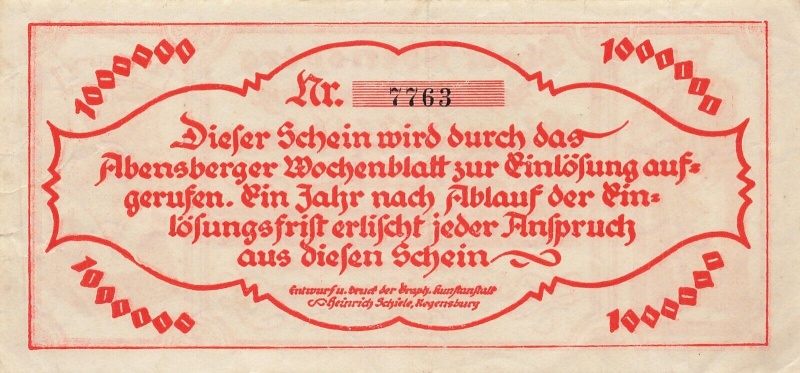 1000000
1000000
Nr. 7763
Dieser Schein wird durch das
Abensberger Wochenblatt zur Einlösung auf=
gerufen. Ein Jahr nach Ablauf der Ein=
lösungsfrist erlischt jeder Anspruch
aus diesen Schein
Entwurf u. Druck der Graph. Kunstanstalt
Heinrich Schiele, Regensburg
1000000
1000000